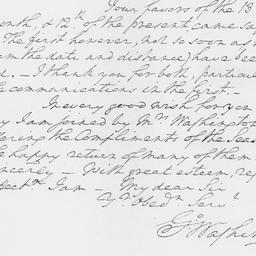 Your favors of the 13
onth, & 12th of the present, came sa
The first however, not so soon as
m the date and distance) have bee
d. — I thank you for both, particu
e communications in the first. —
In every good wish for you
y I am joined by Mrs Washington
ering the Compliments of the Seas
he happy return of many of them
ncerely — With great esteem, re
pect I am — My dear Sir
Yr Obedn Servt
Go Washin